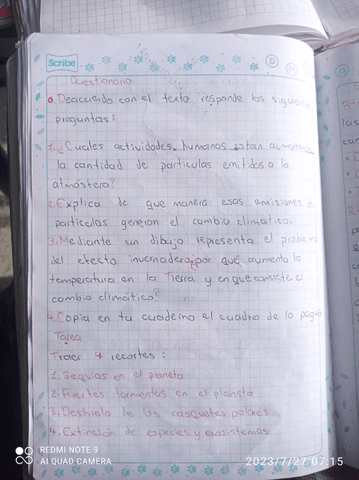 Scribe
Cuestionario
Deacuerdo con el texto responde las siguientes
preguntas:
1. ¿Cuales actividades humanas estan aumentando
la cantidad de particulas emitidas a la
atmósfera?
2. Explica de que manera esas emisiones de
particulas generan el cambio climatico.
3. Mediante un dibujo representa el problema
del efecto invernadero, por qué aumenta la
temperatura en la Tierra y en que consiste el
cambio climático?
4. Copia en tu cuaderno el cuadro de la pagina
Tarea
Traer 4 recortes:
1. Sequias en el planeta
2. Fuertes tormentas en el planeta
3. Deshielo de los casquetes polares
4. Extinsión de especies y ecosistemas
REDMI NOTE 9
AI QUAD CAMERA
2023/7/27 07:15